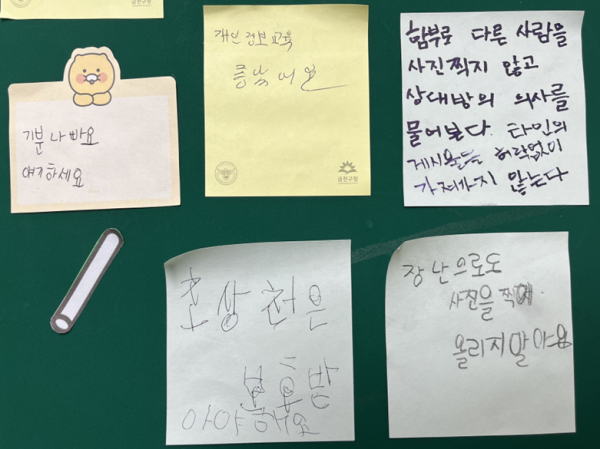 개인정보교육
금천구청
함부로 다른 사람을
사진찍지 않고
상대방의 의사를
물어본다. 타인의
게시물을 허락없이
가져가지 않는다
기분 나빠요
얘기하세요
초상천은
보호받
아야해요
장난으로도
사진을 찍어
올리지말아요